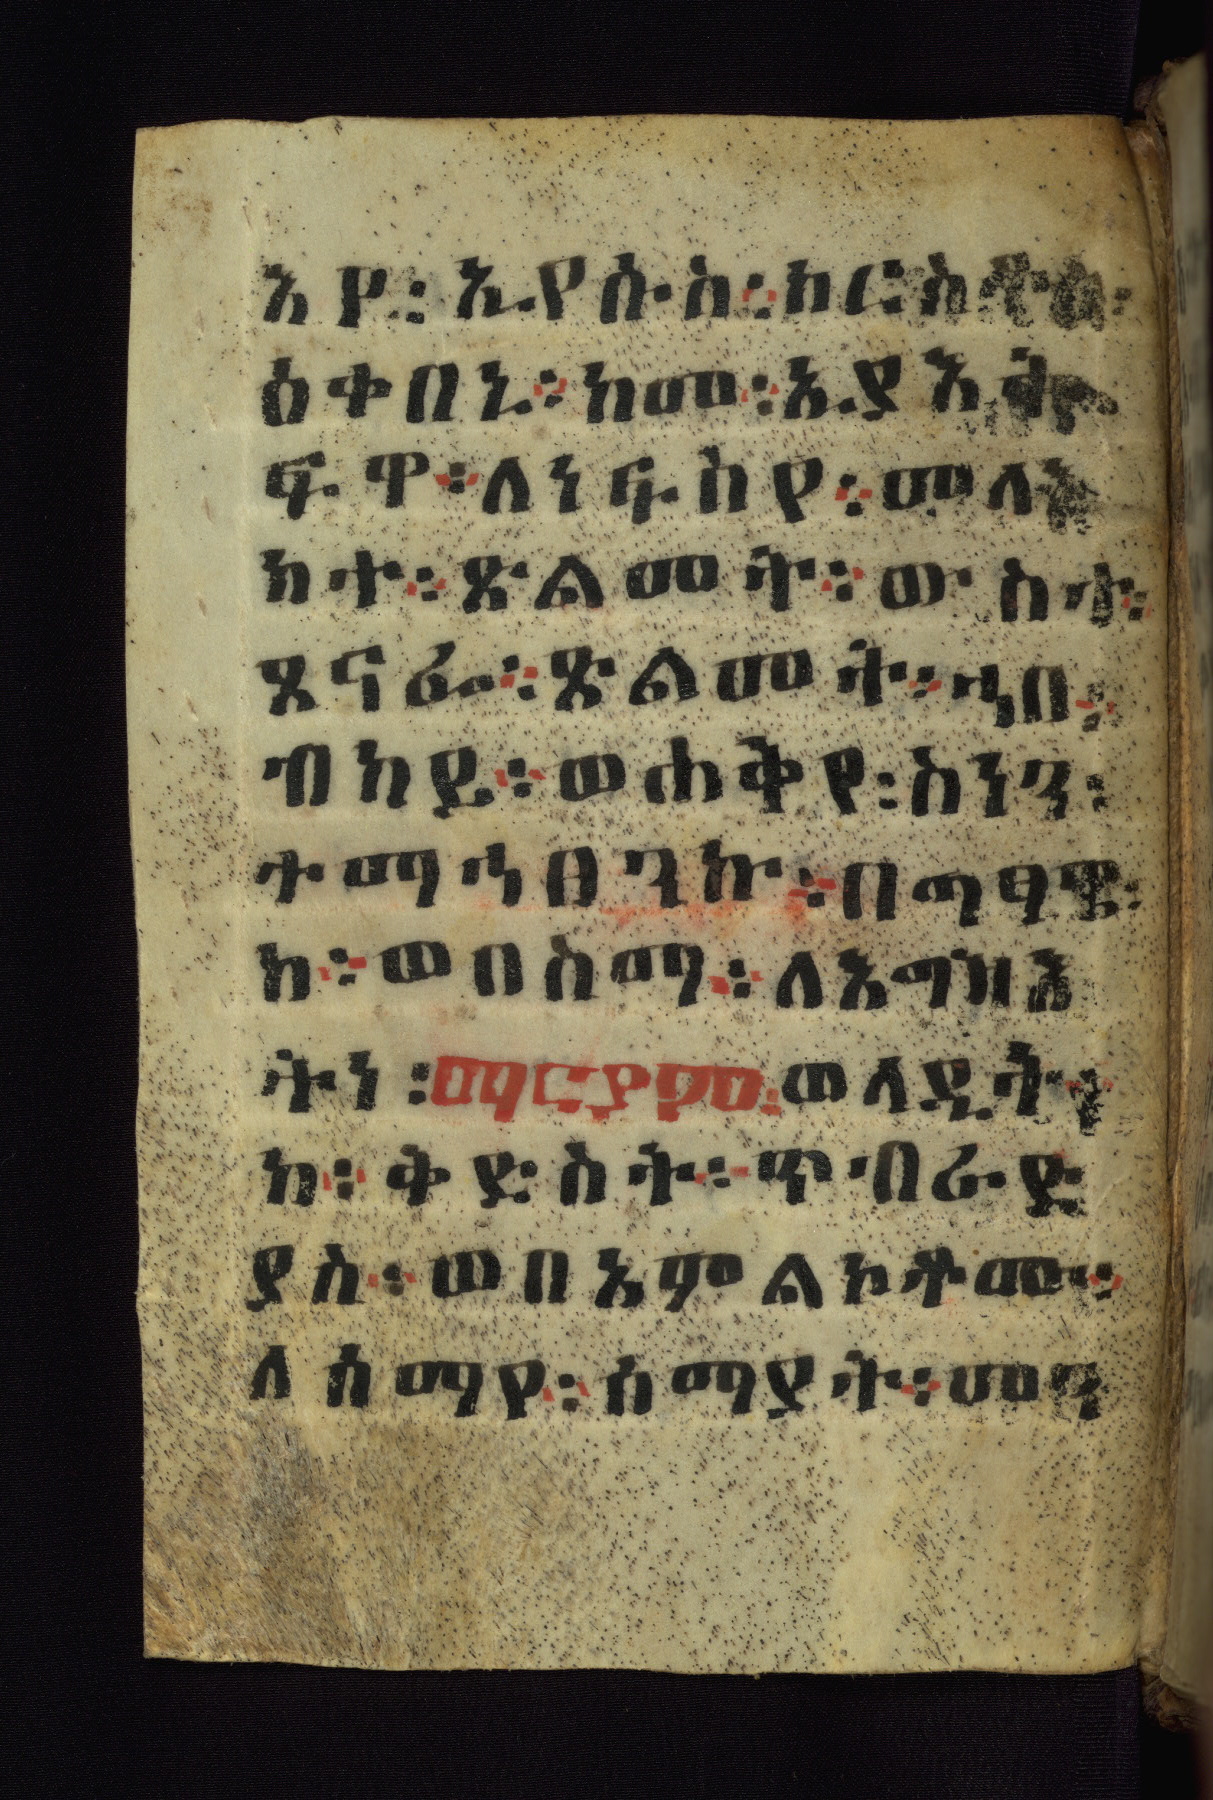 እየ፡ ኢየሱስ፡ ክርስቶስ፡
ዕቀበኒ፡ ከመ፡ ኢያእት
ፍዋ፡ ለነፍስየ፡ መላእ
ክተ፡ ጽልመት፡ ውስተ፡
ጸናፌ፡ ጽልመት፡ ኀበ፡
ብካይ፡ ወሐቅየ፡ ስነን፡
ተማኅፀንኩ፡ በጣፃዌ፡
ከ፡ ወበስማ፡ ለእግዝእ
ትነ፡ ማርያም፡ ወላዲት
ከ፡ ቅድስት፡ ጥብራድ
ያስ፡ ወበአምልኮቶሙ፡
ለሰማየ፡ ሰማያት፡ መን